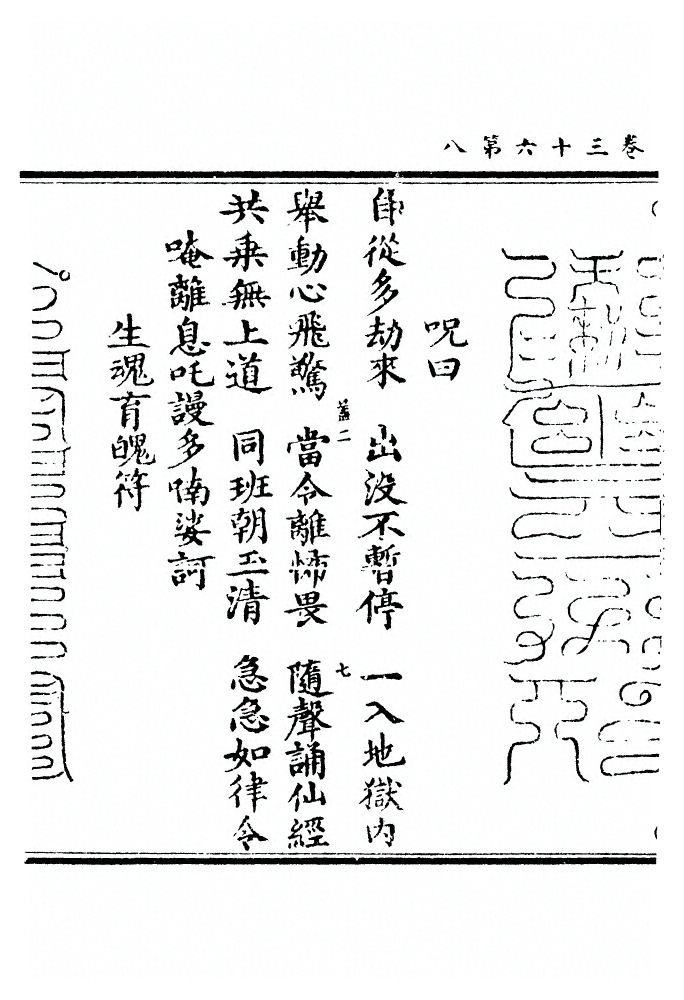 卷三十六第八
呪曰
自從多劫來　出没不暫停　一入地獄内
蓋二　七
舉動心飛驚　當令離怖畏　隨聲誦仙經
共乘無上道　同班朝玉清　急急如律令
唵離息吒謾多喃娑訶
生魂育魄符